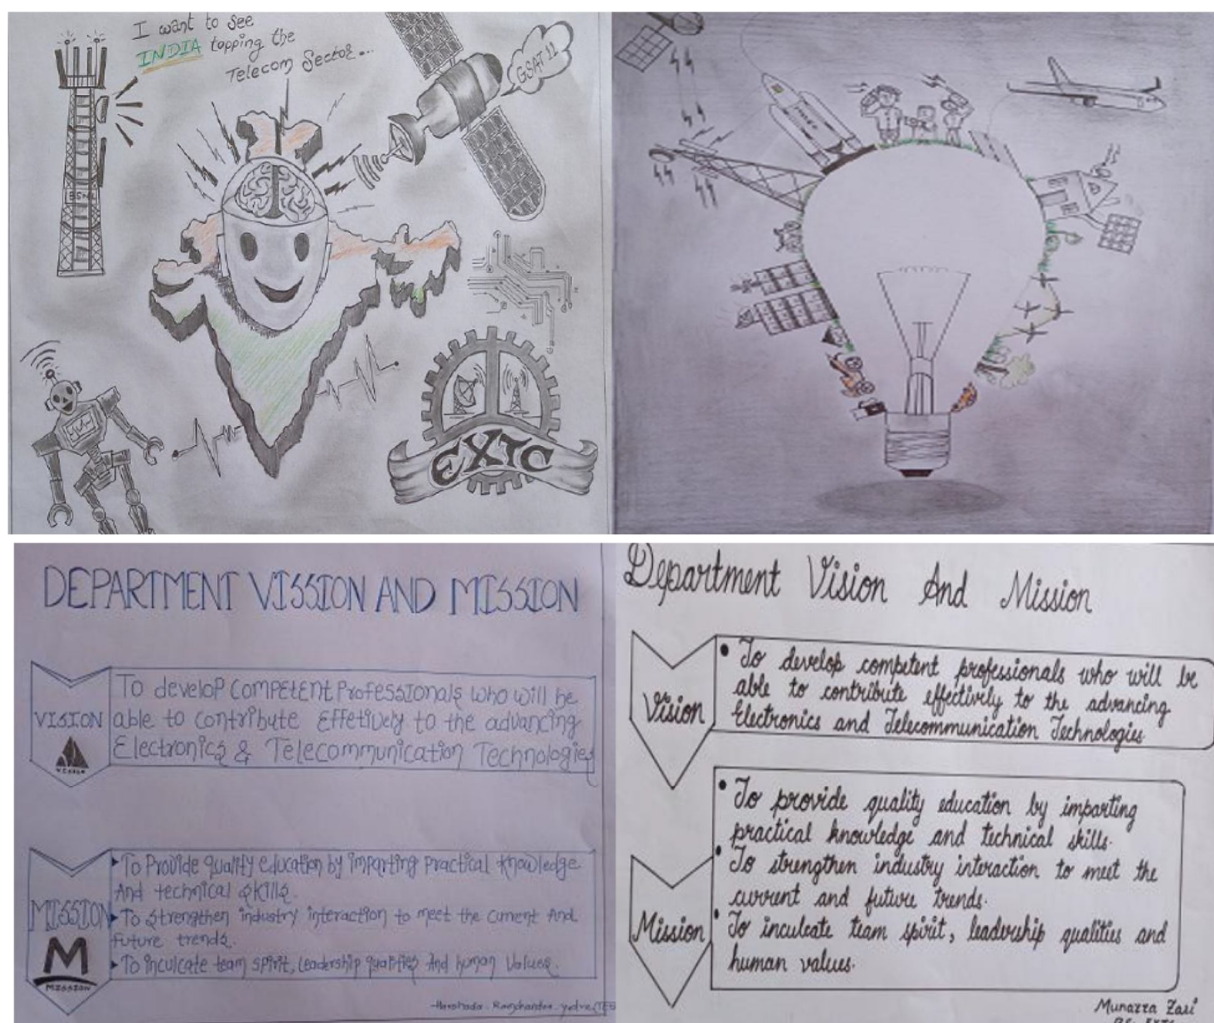 I want to see
INDIA topping the
Telecom Sector...
GSAT 11
BSNL
EXTC
DEPARTMENT VISSION AND MISSION
VISION
To develop competent professionals who will be
able to contribute effetively to the advancing
Electronics & Telecommunication Technologies
VISION
MISSION
M
MISSION
To Provide quality education by imparting practical knowledge
And technical skills.
To strengthen industry interaction to meet the current And
future trends.
To inculcate team spirit, leadership qualities And human values.
Department Vision And Mission
Vision
To develop competent professionals who will be
able to contribute effectively to the advancing
Electronics and Telecommunication Technologies
Mission
To provide quality education by imparting
practical knowledge and technical skills.
To strengthen industry interaction to meet the
current and future trends.
To inculcate team spirit, leadership qualities and
human values.
Munazza